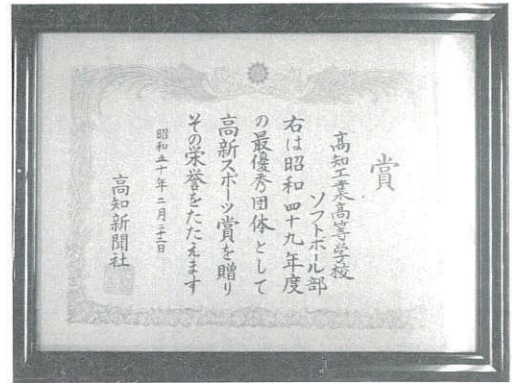 賞
高知工業高等学校
ソフトボール部
右は昭和四十九年度
の最優秀団体として
高新スポーツ賞を贈り
その栄誉をたたえます
昭和五十年二月二十二日
高知新聞社